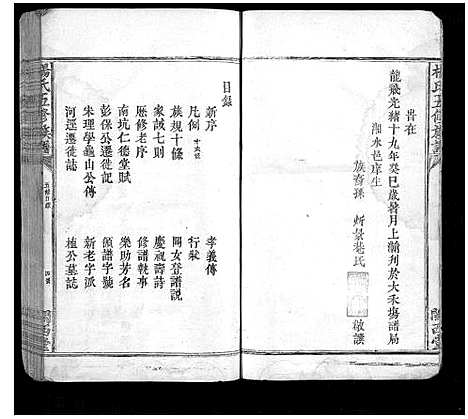 楊氏五修族譜
旹在
龍飛光緒十九年癸巳歲暑月上澣刋於大禾塲譜局
湘水邑庠生
族裔孫
敬譔
目錄
新序
凡例 十六條
族規十條
家誡七則
歷修老序
南坑仁德堂賦
彭保公遷徙誌
朱理學龜山公傳
河逕遷徙誌
孝義傳
行狀
閨女登譜説
慶祝壽詩
修譜執事
樂助芳名
領譜字號
新老字派
植公墓誌
楊氏五修族譜
五修目錄
關西堂